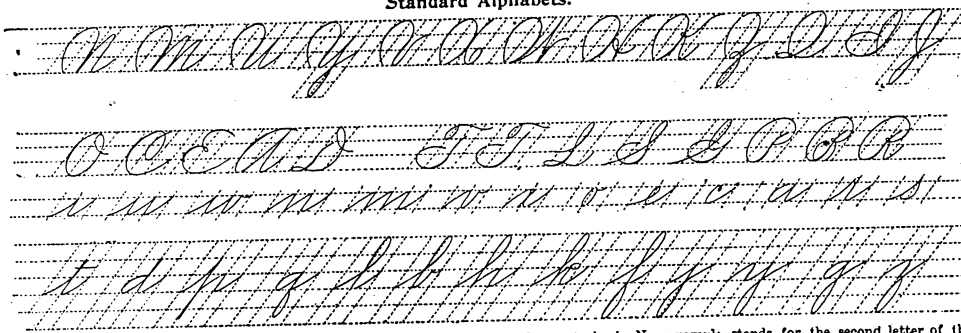 Standard Alphabets.
N M U Y V X W H K Z Q I J
O C E A D F T L S G P B R
i u w n m v x o e c a r s
t d p q l b h k f j y g z
stands for the second letter of